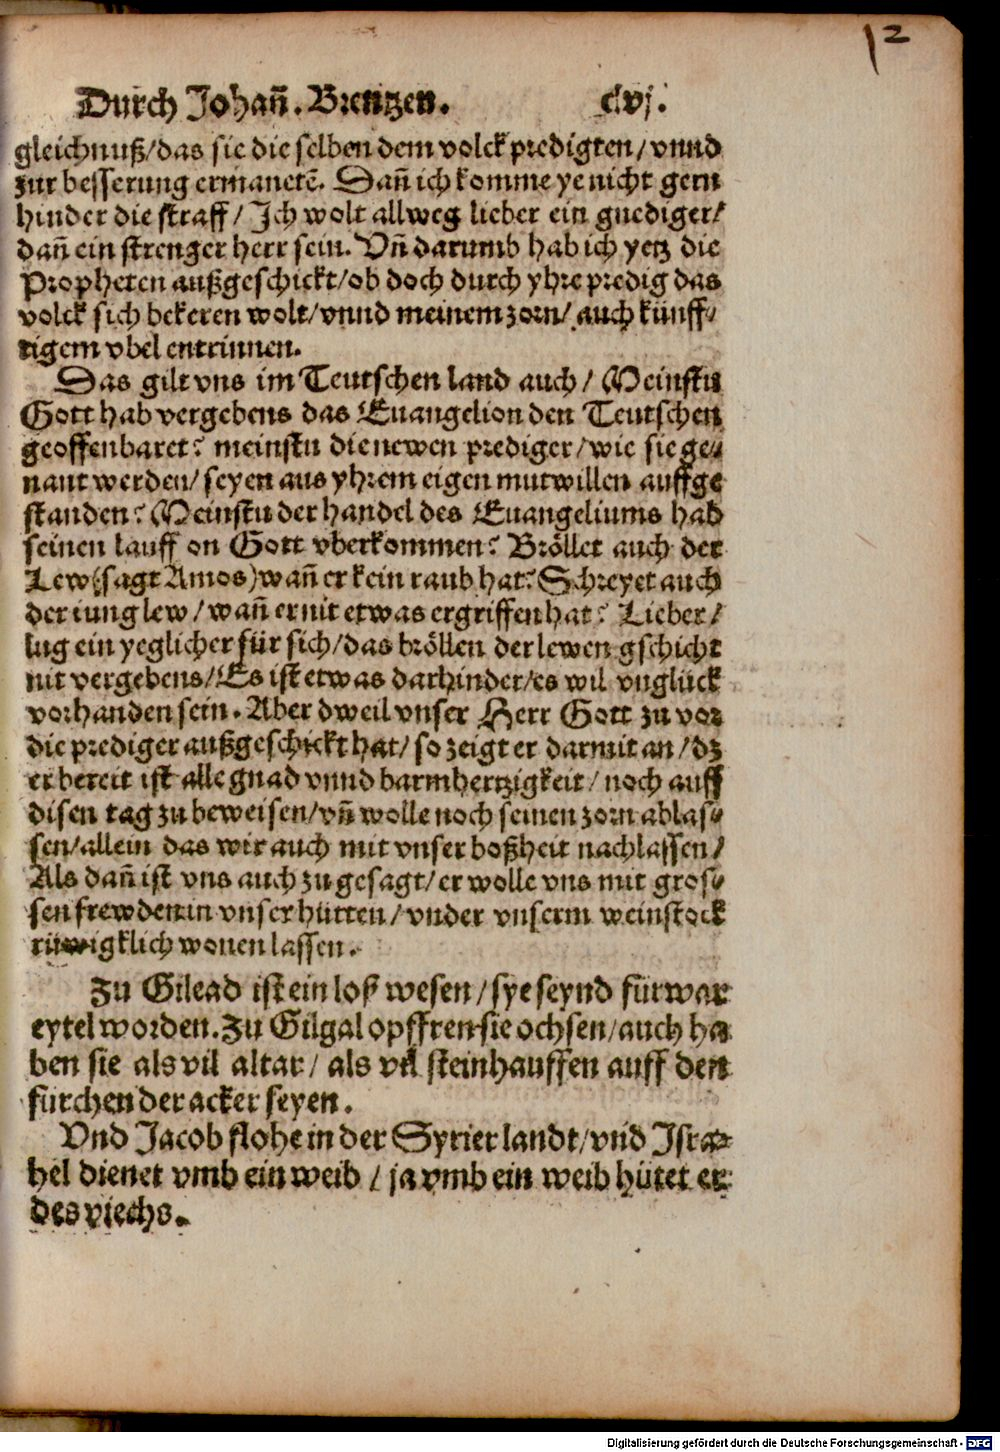 12
Durch Johañ. Brentzen. clvj.
gleichnuß/das sie die selben dem volck predigten/vnnd
zur besserung ermanetē. Dañ ich komme ye nicht gern
hinder die straff/ Ich wolt allweg lieber ein gnediger/
dañ ein strenger herr sein. Vñ darumb hab ich yetz die
Propheten außgeschickt/ob doch durch yhre predig das
volck sich bekeren wolt/vnnd meinem zorn/ auch künff⸗
tigem vbel entrinnen.
Das gilt vns im Teutschen land auch/ Meinstu
Gott hab vergebens das Euangelion den Teutschen
geoffenbaret? meinstu die newen prediger/wie sie ge⸗
nant werden/ seyen aus yhrem eigen mutwillen auffge
standen? Meinstu der handel des Euangeliums hab
seinen lauff on Gott vberkommen? Bröllet auch der
Lew (sagt Amos) wañ er kein raub hat? Schreyet auch
der iung lew/ wañ er nit etwas ergriffen hat? Lieber/
lug ein yeglicher für sich/das bröllen der lewen gschicht
nit vergebens/Es ist etwas darhinder/es wil vnglück
vorhanden sein. Aber dweil vnser Herr Gott zu vor
die prediger außgeschickt hat/ so zeigt er darmit an/dz
er bereit ist alle gnad vnnd barmhertzigkeit/ noch auff
disen tag zu beweisen/vñ wolle noch seinen zorn ablas⸗
sen/allein das wir auch mit vnser boßheit nachlassen/
Als dañ ist vns auch zu gesagt/ er wolle vns mit gros⸗
sen frewden in vnser hütten/ vnder vnserm weinstock
rüwigklich wonen lassen.
Zu Gilead ist ein loß wesen/ sye seynd fürwar
eytel worden. Zu Gilgal opffren sie ochsen/auch ha
ben sie als vil altar/ als vil steinhauffen auff den
fürchen der acker seyen.
Vnd Jacob flohe in der Syrier landt/vnd Isra⸗
hel dienet vmb ein weib/ ja vmb ein weib hütet er
des viechs.
Digitalisierung gefördert durch die Deutsche Forschungsgemeinschaft - DFG